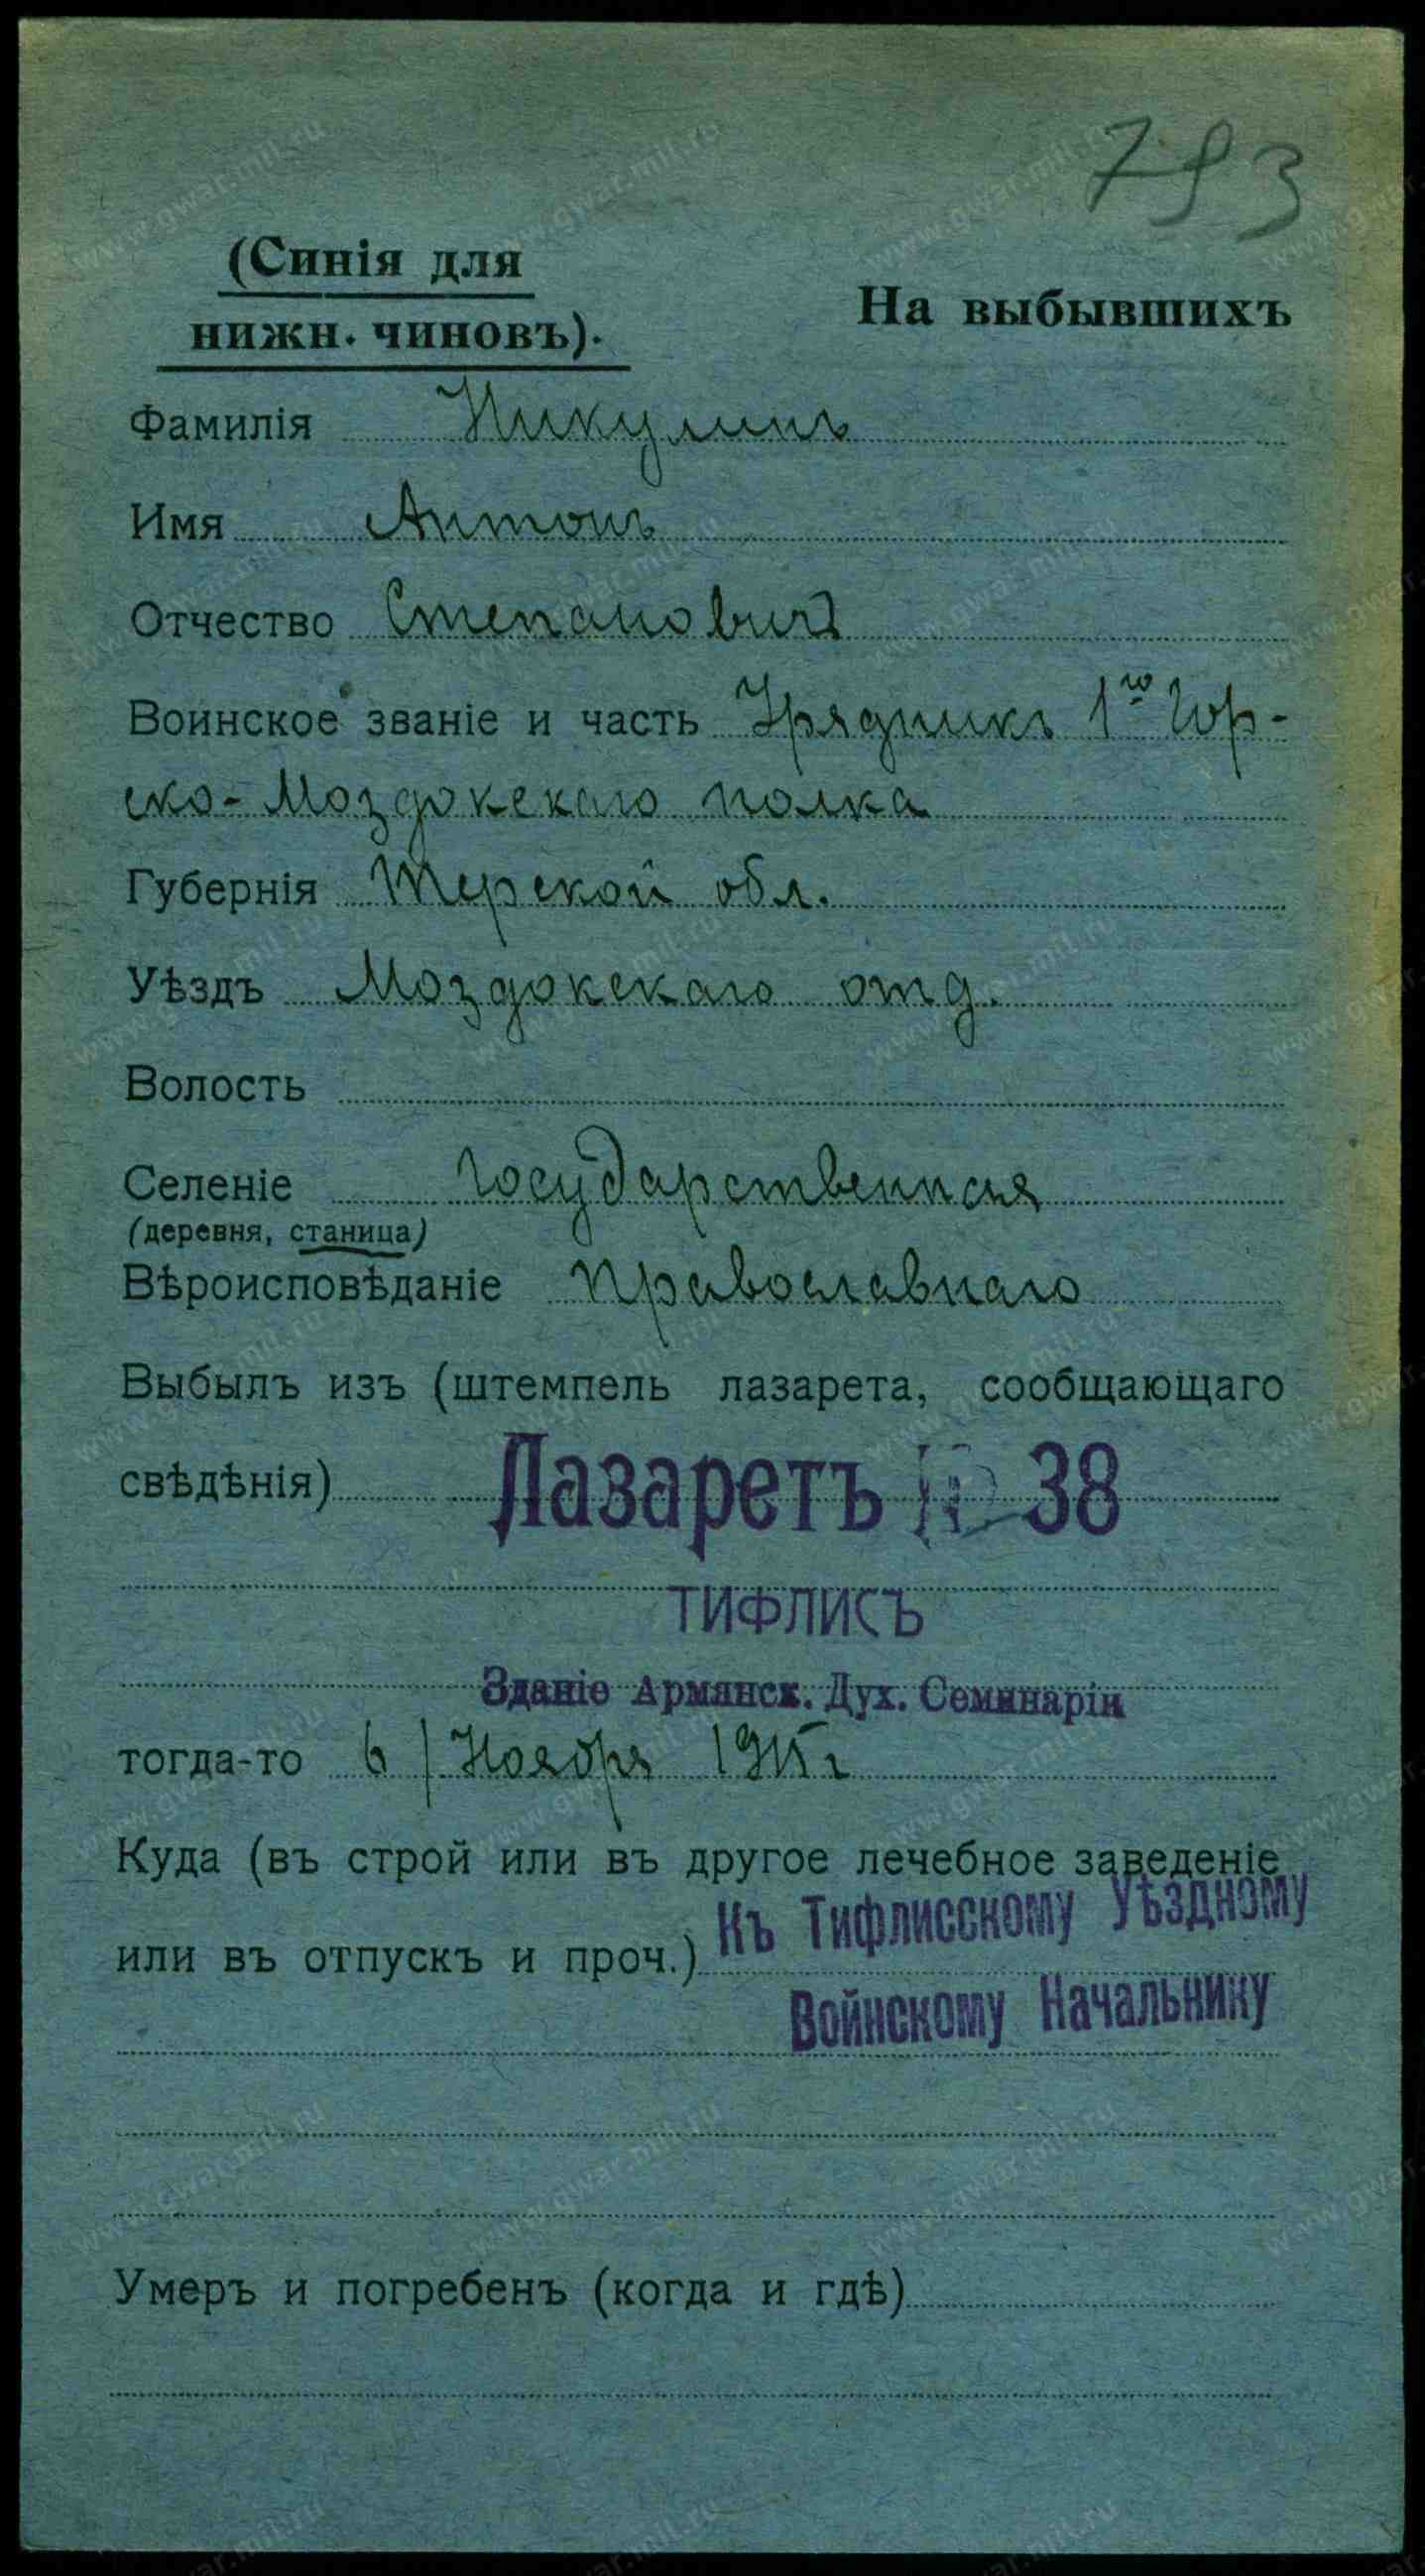 793
(Синія для
нижн. чиновъ).
На выбывшихъ
Фамилія Никулинъ
Имя Антонъ
Отчество Степановичъ
Воинское званіе и часть Урядникъ 1го Гор-
ско-Моздокскаго полка
Губернія Терской обл.
Уѣздъ Моздокскаго отд.
Волость
Селеніе Государственная
(деревня, станица)
Вѣроисповѣданіе Православнаго
Выбылъ изъ (штемпель лазарета, сообщающаго
свѣдѣнія) Лазаретъ № 38
ТИФЛИСЪ
Зданіе Армянск. Дух. Семинаріи
тогда-то 6/Ноября 1915г
Куда (въ строй или въ другое лечебное заведеніе
или въ отпускъ и проч.) Къ Тифлисскому Уѣздному
Воинскому Начальнику
Умеръ и погребенъ (когда и гдѣ)
www.gwar.mil.ru